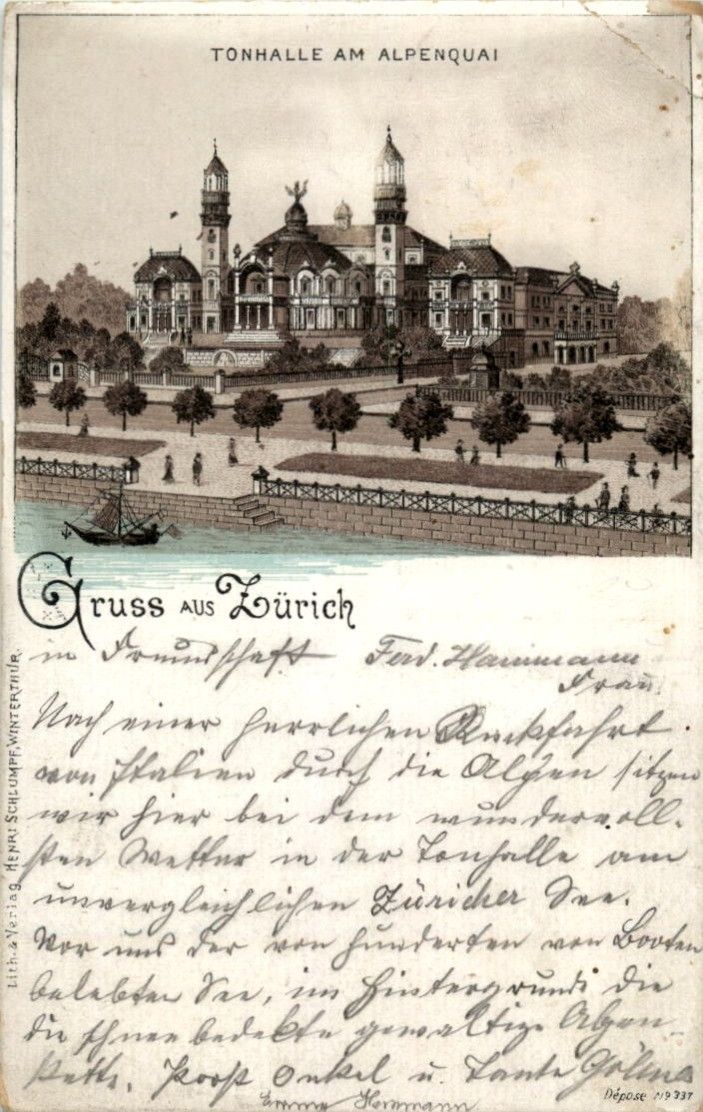 TONHALLE AM ALPENQUAI
Gruss aus Zürich
in Freundschaft Ferd. Hammann
Frau.
Nach einer herrlichen Rückfahrt
von Italien durch die Alpen sitzen
wir hier bei dem wundervoll-
sten Wetter in der Tonhalle am
unvergleichlichen Züricher See.
Vor uns der von hunderten von Booten
belebten See, im Hintergrunde die
die schneebedekte gewaltige Alpen-
kette. Prost Onkel u. Tante
Lith. & Verlag Henri Schlumpf, Winterthur.
Déposé No 337